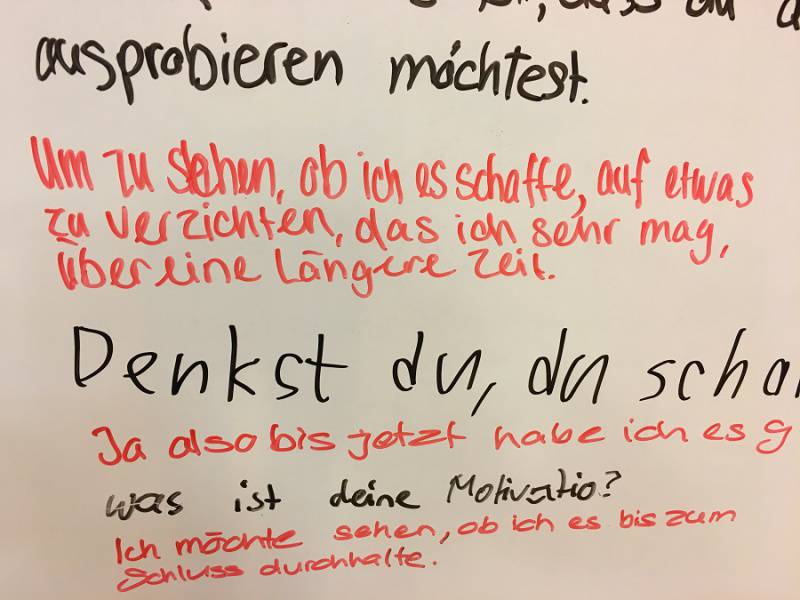 dass du
ausprobieren möchtest.
Um zu sehen, ob ich es schaffe, auf etwas
zu verzichten, das ich sehr mag,
über eine längere Zeit.
Denkst du, du
Ja also bis jetzt habe ich es
was ist deine Motivatio?
Ich möchte sehen, ob ich es bis zum
Schluss durchhalte.